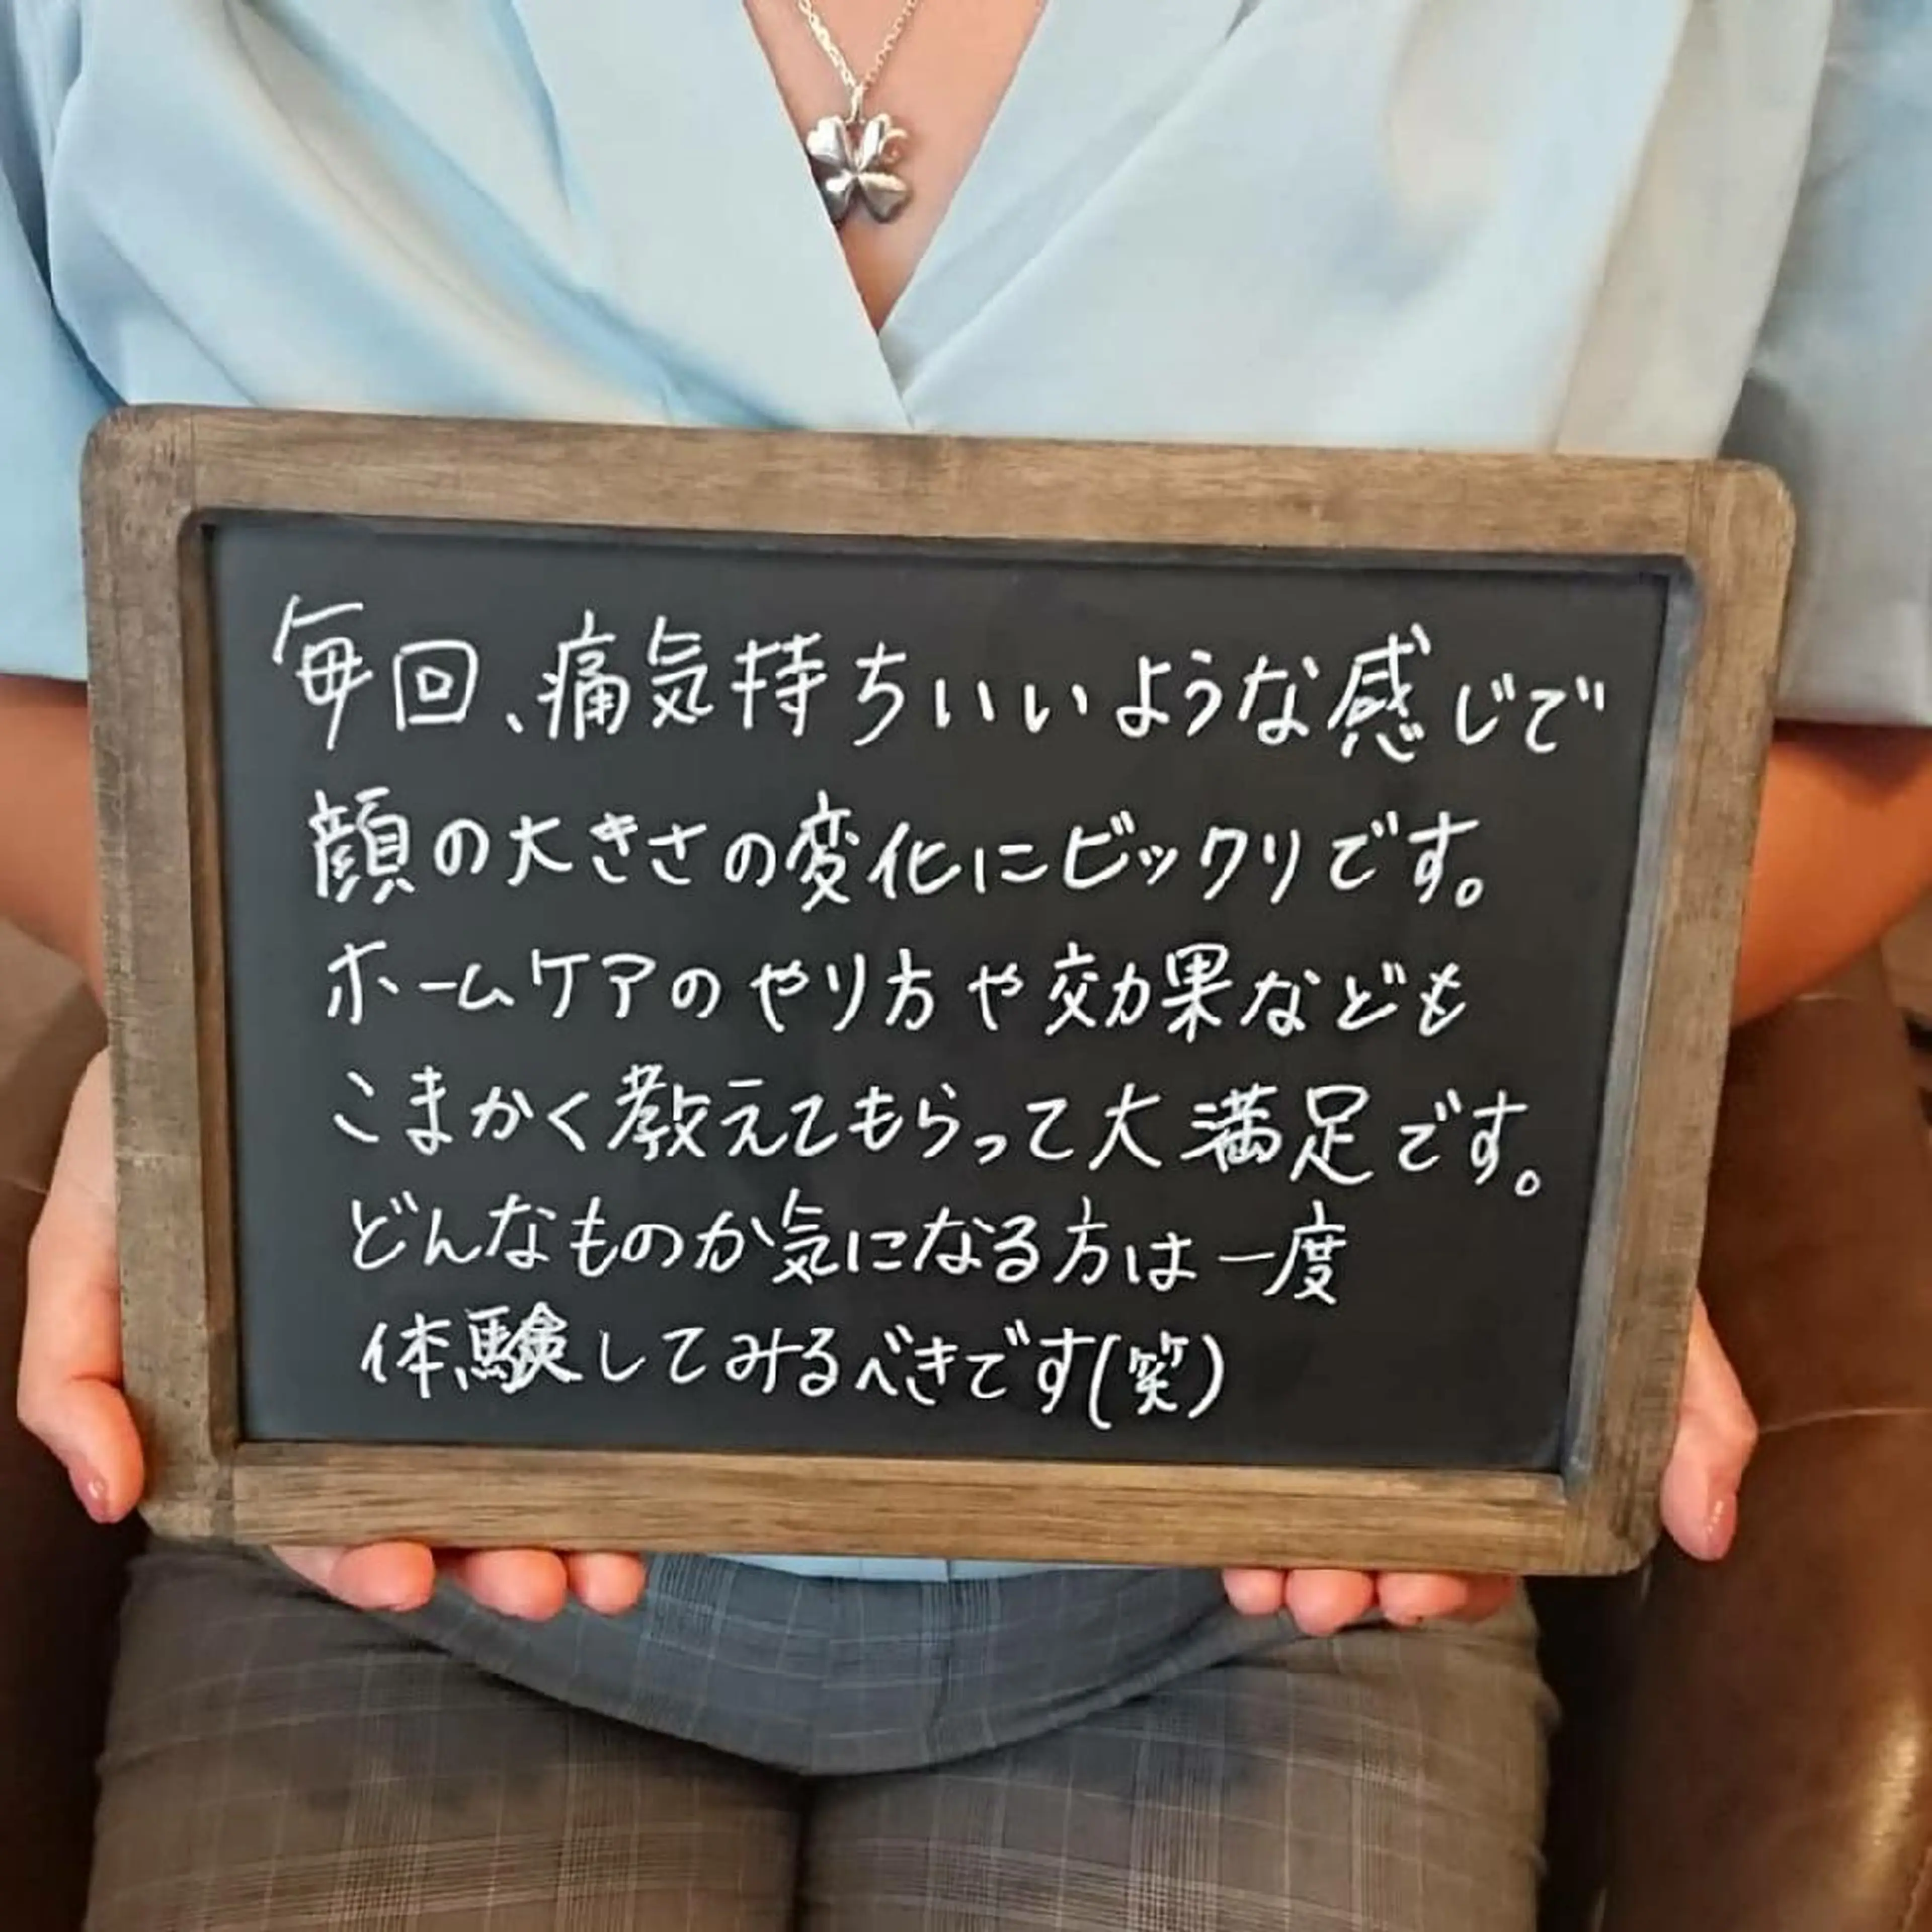 毎回、痛気持ちいいような感じで
顔の大きさの変化にビックリです。
ホームケアのやり方や効果なども
こまかく教えてもらって大満足です。
どんなものか気になる方は一度
体験してみるべきです(笑)